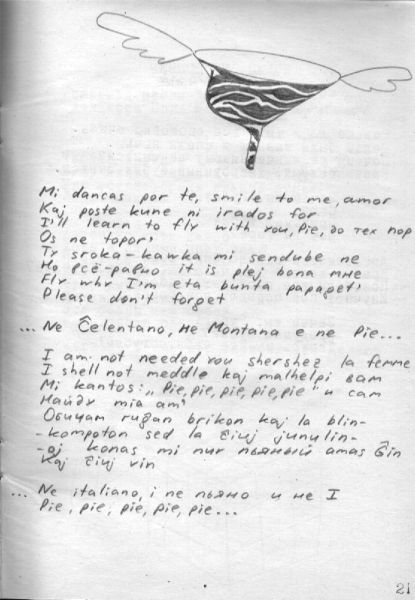 Mi dancas por te, smile to me, amor
Kaj poste kune ni irados for
I'll learn to fly with you, Pie, до тех пор
Os ne topor'
Ty sroka-kawka mi sendube ne
Но всё-равно it is plej bona мне
Fly why I'm eta bunta papaget'
Please don't forget
... Ne Ĉelentano, не Montana e ne Pie...
I am not needed you shershez la femme
I shell not meddle kaj malhelpi вам
Mi kantos: „Pie, pie, pie, pie, pie" и сам
Найду mia am'
Обичам ruĝan brikon kaj la blin-
-kompoton sed la ĉiuj junulin-
-oj konas mi nur пьяный amas Ĝin
Kaj ĉiuj vin
... Ne italiano, i ne пьяно и не I
Pie, pie, pie, pie, pie...
21